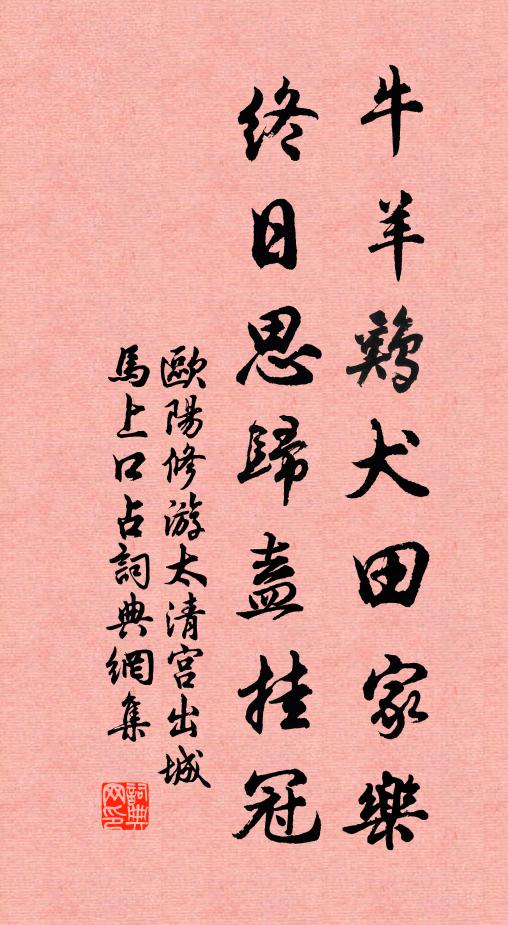 牛羊鷄犬田家樂
終日思歸盍挂冠
歐陽修游太清宮出城
馬上口占詞典網集
詞典网印